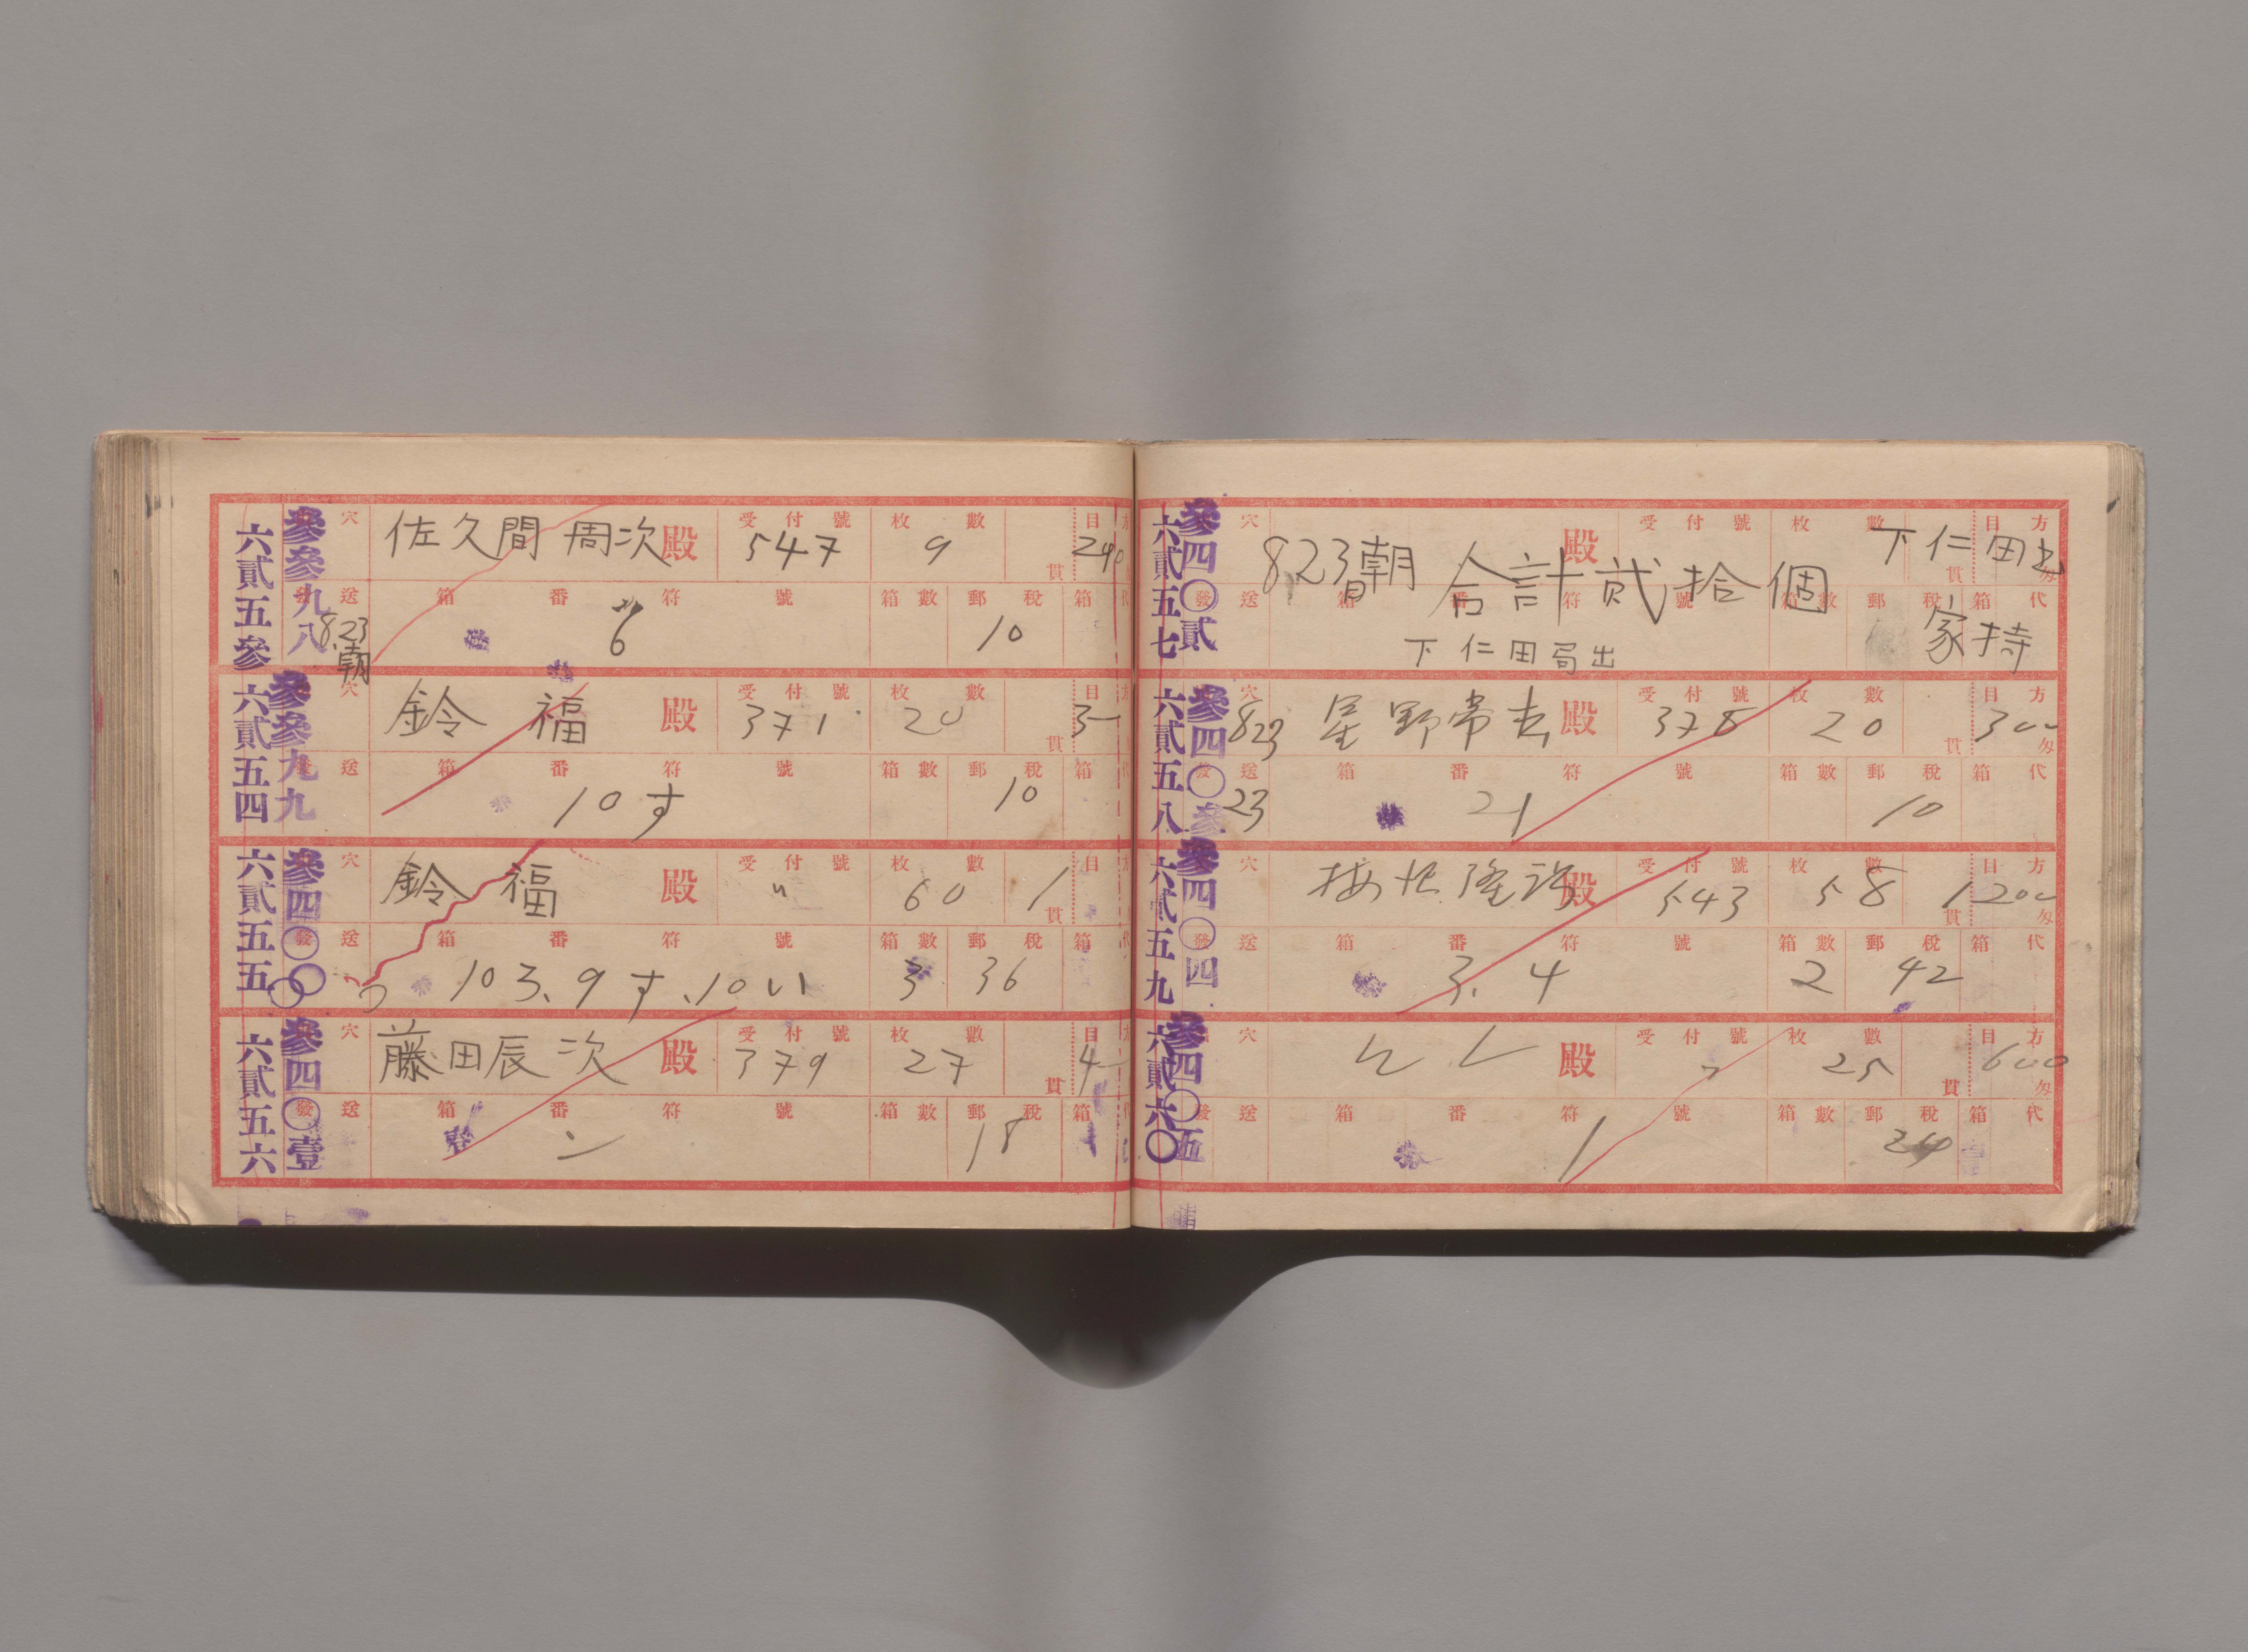 六貳五參
參參九八
穴 佐久間 周次 殿 受付號 547 枚數 9 貫 目 240
發送 8.23 朝 箱番符號 6 箱數 郵税 10 箱
六貳五四
參參九九
穴 鈴 福 殿 受付號 371 枚數 20 貫 目 3-
發送 箱番符號 10す 箱數 郵税 10 箱
六貳五五
參四〇〇
穴 鈴 福 殿 受付號 〃 枚數 60 1貫 目
發送 箱番符號 10ろ、9す、10い 箱數 3 郵税 36 箱
六貳五六
參四〇壹
穴 藤田辰次 殿 受付號 379 枚數 27 貫 目 4-
發送 箱番符號 箱數 郵税 18 箱
六貳五七
參四〇貳
穴 殿 受付號 枚數 貫 目方 匁 下仁田出
823日朝 合計貮拾個
發送 箱番符號 箱數 郵税 箱代 家持
下仁田局出
六貳五八
參四〇參
穴 823 星野常吉 殿 受付號 378 枚數 20 貫 目方 300 匁
發送 23 箱番符號 21 箱數 郵税 10 箱代
六貳五九
參四〇四
穴 殿 受付號 543 枚數 58 1貫 目方 200 匁
發送 箱番符號 3、4 箱數 2 郵税 42 箱代
六貳六〇
參四〇五
穴 殿 受付號 枚數 25 貫 目方 600 匁
發送 箱番符號 1 箱數 郵税 箱代